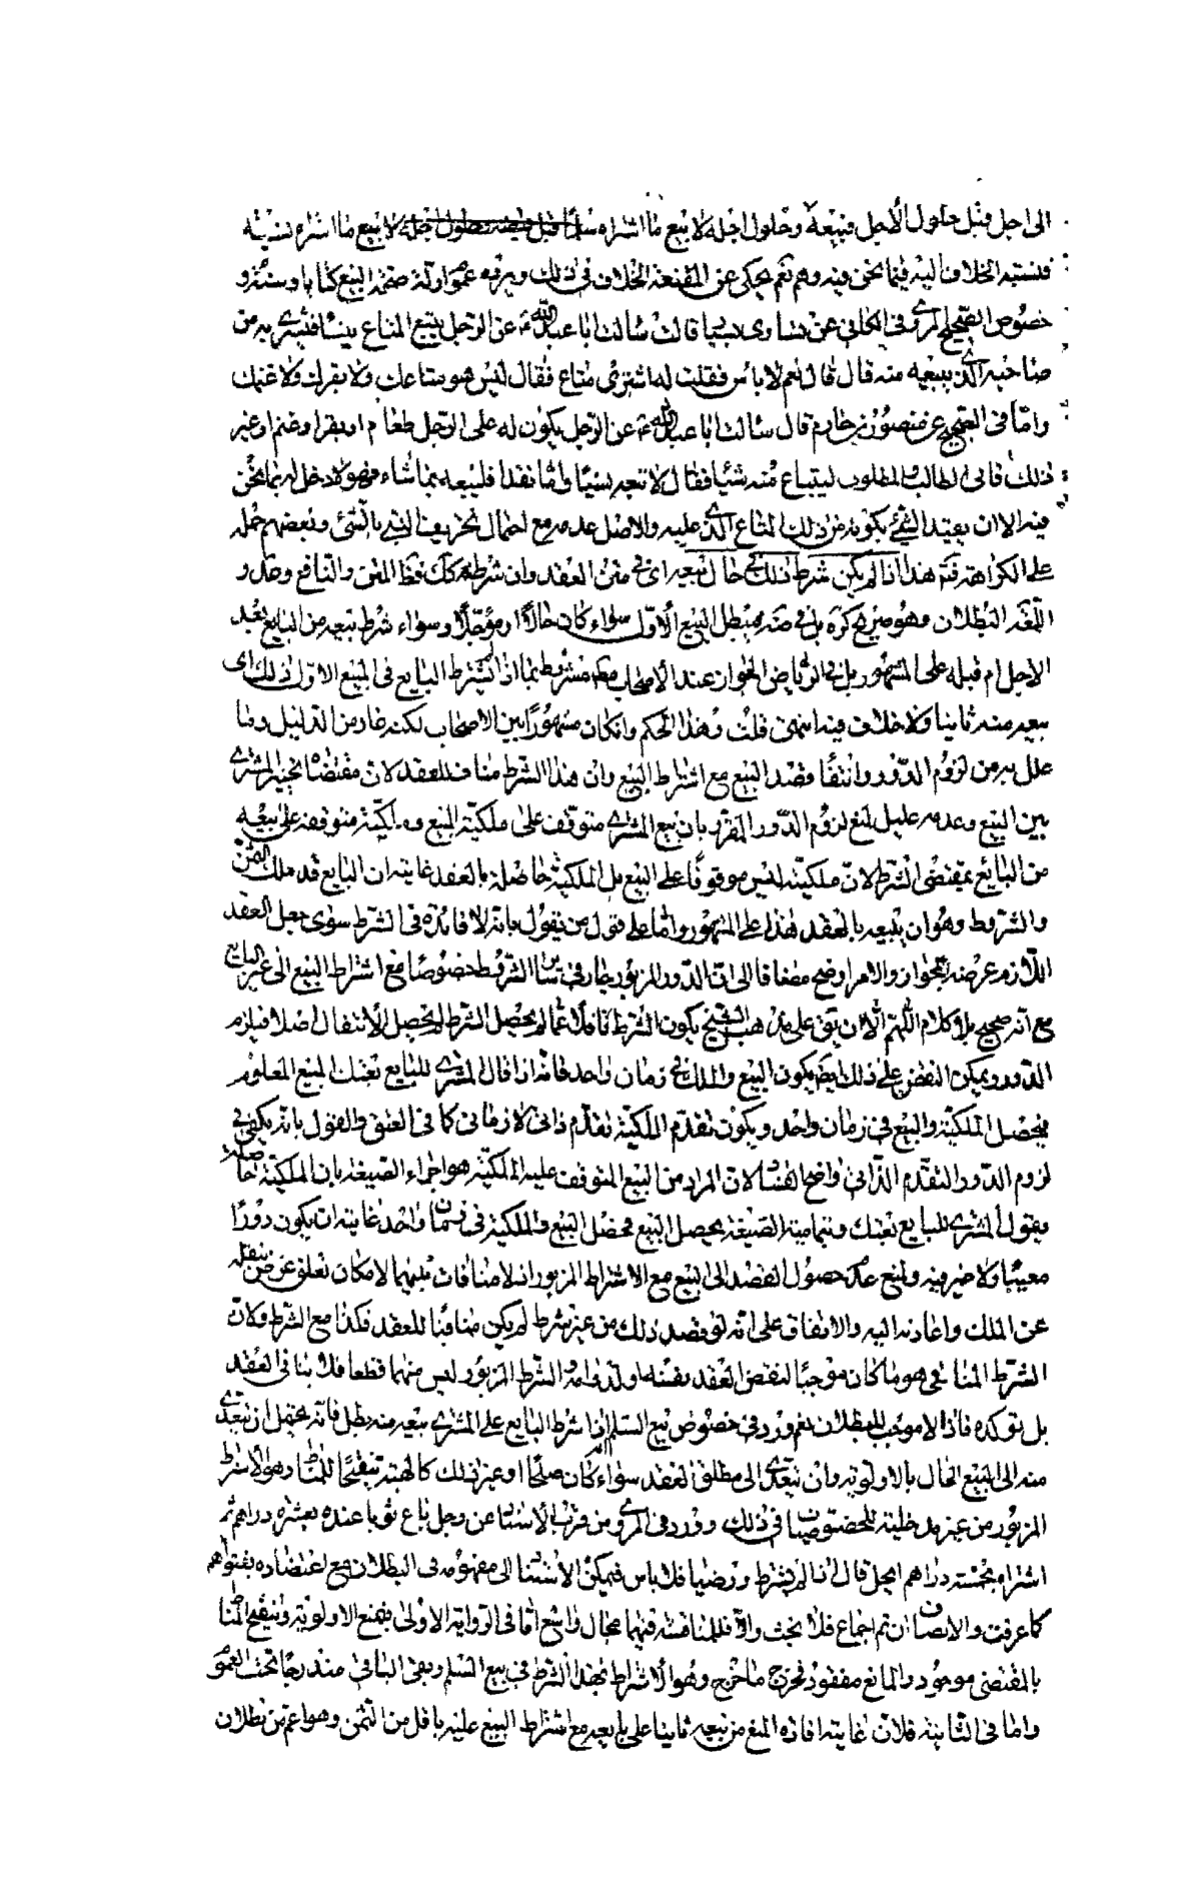 الى اجل قبل حلول الأجل فيبيعه وحلول اجله لا بيع ما اشتراه لا بيع ما اشتراه نسيئة
فنسبته الخلاف اليه فيما نحن فيه وهم نعم يحكى عن المقنعة الخلاف في ذلك ويرده عموم ادلة صحة البيع كتابا وسنة و
خصوص الصحيح المروي في الكافي عن بشار بن يسار قال سألت ابا عبد الله عن الرجل يبيع المتاع بنسأ فيشتريه من
صاحبه الذي يبيعه منه قال قال نعم لا باس فقلت له اشتري متاعي فقال ليس هو متاعك ولا بقرك ولا غنمك
وامّا في الصحيح عن منصور بن حازم قال سألت ابا عبد الله عن الرجل يكون له على الرجل طعام او بقر او غنم او غير
ذلك فاتى الطالب المطلوب ليبتاع منه شيئا فقال لا تبعه نسيئا وامّا نقدا فليبعه بما شاء فهو لا دخل له بما نحن
فيه الا ان يقيد الشيء بكونه من ذلك المتاع الذي عليه والاصل عدمه مع احتمال تحريف النسيء بالشيء وبعضهم حمله
على الكراهة ثم هذا اذا لم يكن شرط ذلك في حال بيعه اى في متن العقد وان شرط ذلك فظ المتن والنافع وصل و
اللمعة البطلان وهو صريح كره بل في ضه يبطل البيع الأوّل سواء كان حالا او مؤجلا وسواء شرط بيعه من البايع بعد
الاجل ام قبله على المشهور بل في الرياض الجواز عند الأصحاب مطم مشروط بما اذا لم يشترط البايع في البيع الاوّل ذلك اى
بيعه منه ثانيا ولا خلاف فيه انتهى قلت وهذا الحكم وان كان مشهورا بين الاصحاب لكنه عار من الدليل وما
علل به من لزوم الدّور وانتفاء قصد البيع مع اشتراط البيع وان هذا الشرط مناف للعقد لان مقتضاه تخيير المشتري
بين البيع وعدمه عليل لمنع لزوم الدّور المقرر بان بيع المشتري متوقف على ملكيّة المبيع وملكيّته متوقفة على بيعه
من البايع بمقتضى الشرط لانّ ملكيّته ليس موقوفا على البيع بل الملكية حاصلة بالعقد غايته ان البايع قد ملك الثمن
والشروط وهو ان يبيعه بالعقد هذا على المشهور وامّا على قول من يقول بانّه لا فائدة في الشرط سوى جعل العقد
اللازم عرضه للجواز والامر اوضح مضافا الى انّ الدّور المزبور جار في ساير الشروط خصوصا مع اشتراط البيع الى غير البايع
مع انه صحيح بلا كلام اللهم الّا ان يق على مذهب الشيخ بكون الشرط ناقلا فما لم يحصل الشرط لم يحصل الأنتقال اصلا فيلزم
الدّور ويمكن النقض على ذلك ايضا بكون البيع والملك في زمان واحد فانّه اذا قال المشتري للبايع بعتك المبيع المعلوم
فيحصل الملكية والبيع في زمان واحد ويكون تقدّم الملكيّة تقدّم ذاتى لا زمانى كما في العتق والقول بانّه يكفي في
لزوم الدّور التقدّم الذّاتي واضح الفساد لانّ المراد من البيع المتوقف عليه الملكيّة هو اجراء الصيغة بان الملكيّة حاصلة
بقول المشتري للبايع بعتك وبتماميّة الصّيغة يحصل البيع فحصل البيع والملكية في زمان واحد غايته ان يكون دورًا
معيّا ولا ضير فيه ولمنع عدم حصول القصد الى البيع مع الاشتراط المزبور اذ لا منافات بينهما لامكان تعلق غرض بنقله
عن الملك واعادته اليه والاتفاق على انّه لو قصد ذلك من غير شرط لم يكن منافيا للعقد فكذا مع الشرط ولانّ
الشرط المنافي هو ما كان موجبًا لنقض العقد بنفسه او لذواته والشرط المزبور ليس منهما قطعا فلا ينافى العقد
بل توكده فاذا لا موجب للبطلان نعم ورد في خصوص بيع السّلم اذا شرط البايع على المشتري بيعه منه بطل فانّه يحتمل ان يتعدى
منه الى البيع الحال بالاولويّة وان يتعدى الى مطلق العقد سواء كان صلحًا او غير ذلك كالهبة تنقيحًا للمناط وهو الأشتراط
المزبور من غير مدخلية للخصوصيات في ذلك وورد في المروي من قرب الأسناد عن رجل باع ثوبا عنده بعشرة دراهم ثم
اشتراه بخمسة دراهم ايحل قال اذا لم يشترط ورضيا فلا باس فيمكن الأستناد الى مفهومه في البطلان مع اعتضاده بفتواهم
كما عرفت والانصاف ان تم اجماع فلا بحث والّا فللمناقشة فيهما مجال واسع امّا في الرّواية الاولى فبمنع الاولوية وتنقيح المناط
بالمقتضى موجود والمانع مفقود فخرج ما خرج وهو الأشتراط بهذا الشرط في بيع السّلم وبقى الباقي مندرجا تحت العموم
واما في الثانية فلانّ غايته افادة المنع من بيعه ثانيا على بايعه مع اشتراط البيع عليه باقل من الثمن وهو اعم من بطلان